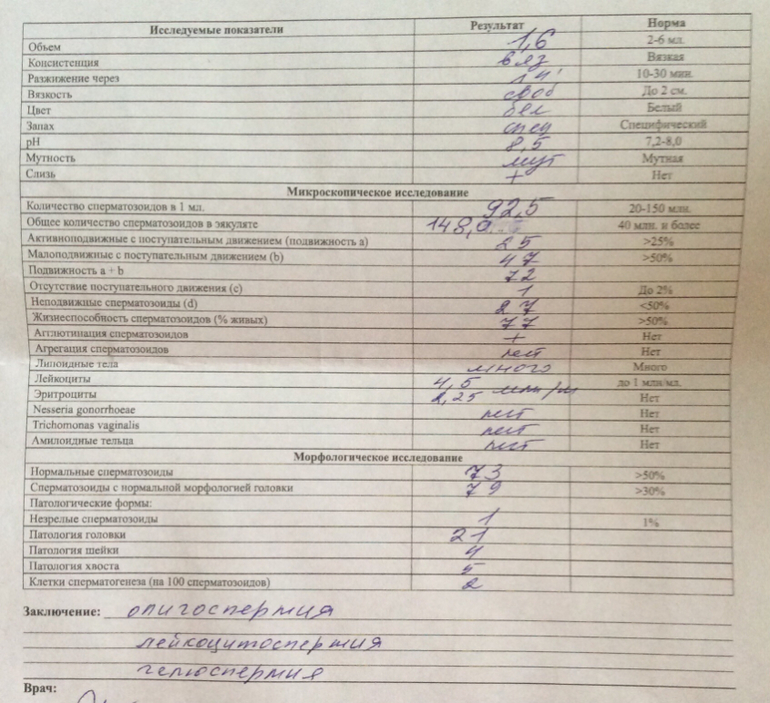 Исследуемые показатели Результат Норма
Объем 1,6 2-6 мл.
Консистенция вяз Вязкая
Разжижение через 14' 10-30 мин.
Вязкость своб До 2 см.
Цвет бел Белый
Запах спец Специфический
pH 8,5 7,2-8,0
Мутность мут Мутная
Слизь + Нет
Микроскопическое исследование
Количество сперматозоидов в 1 мл. 92,5 20-150 млн.
Общее количество сперматозоидов в эякуляте 148,0 40 млн. и более
Активноподвижные с поступательным движением (подвижность a) 25 >25%
Малоподвижные с поступательным движением (b) 47 >50%
Подвижность a + b 72
Отсутствие поступательного движения (c) 1 До 2%
Неподвижные сперматозоиды (d) 27 <50%
Жизнеспособность сперматозоидов (% живых) 77 >50%
Агглютинация сперматозоидов + Нет
Агрегация сперматозоидов нет Нет
Липоидные тела много Много
Лейкоциты 4,5 до 1 млн/мл.
Эритроциты 2,25 млн/м Нет
Nesseria gonorrhoeae нет Нет
Trichomonas vaginalis нет Нет
Амилоидные тельца нет Нет
Морфологическое исследование
Нормальные сперматозоиды 73 >50%
Сперматозоиды с нормальной морфологией головки 79 >30%
Патологические формы:
Незрелые сперматозоиды 1 1%
Патология головки 21
Патология шейки 4
Патология хвоста 5
Клетки сперматогенеза (на 100 сперматозоидов) 2
Заключение: олигоспермия
лейкоцитоспермия
гемоспермия
Врач: